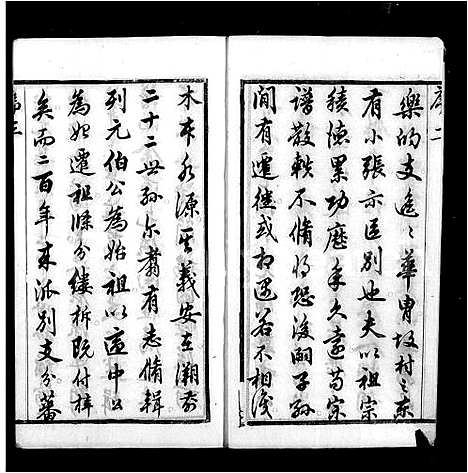 序二
樂的支遙々華胄坟村之東
有小張亦區别也夫以祖宗
積德累功歷年久遠苟宗
譜散軼不脩將恐後嗣子孫
間有遷徙或相遇若不相淺
木本水源其義安在溯前
二十二世孫尔翥有志脩輯
列元伯公為始祖以遠中公
為始遷祖條分縷析既付梓
矣而二百年來派别支分蕃
序三